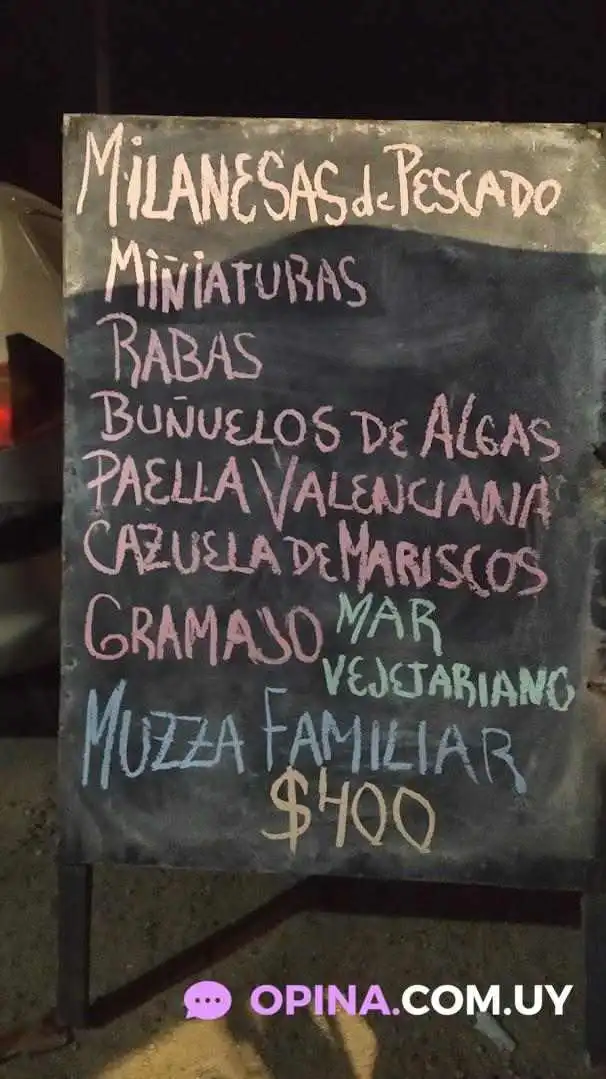 MiLANESAS de PESCADO
MIÑIATURAS
RABAS
BUÑUELOS DE ALGAS
PAELLA VALENCIANA
CAZUELA DE MARISCOS
GRAMAJO MAR
VEJETARIANO
MUZZA FAMILIAR
$400
OPINA.COM.UY